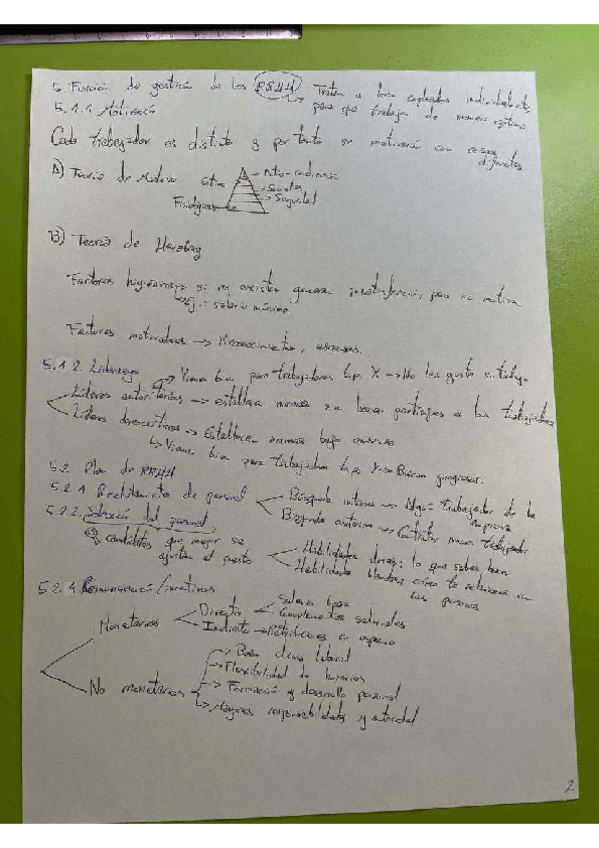 5. Función de gestión de los RRHH → Tratan a los empleados individualmente
para que trabajen de manera óptima
5.1.1 Motivación
Cada trabajador es distinto y por tanto se motivará con cosas
diferentes
A) Teoría de Maslow
Auto-realización
Estima
Sociales
Seguridad
Fisiológicas
B) Teoría de Herzberg
Factores higiénicos → si no existen generan insatisfacción, pero no motiva
Ej.: salario mínimo
Factores motivadores → Reconocimiento, ascensos.
5.1.2. Liderazgo
→ Viene bien para trabajadores tipo X → No les gusta su trabajo
Líderes autoritarios → establece normas sin hacer partícipes a los trabajadores
Líderes democráticos → Establecen normas bajo
→ Viene bien para trabajadores tipo Y → Buscan progresar.
5.2. Plan de RRHH
5.2.1 Reclutamiento de personal
Búsqueda interna → Algún trabajador de la
empresa
Búsqueda externa → Contratar nuevo trabajador
5.2.2. Selección del personal
candidatos que mejor se
ajustan al puesto
Habilidades duras: lo que sabes hacer
Habilidades blandas: cómo te relacionas con
las personas
5.2.4. Remuneración/incentivos
Monetarios
Directo
Salario base
Complementos salariales
Indirecto → Retribuciones en especie
No monetarios
→ Buen clima laboral
→ Flexibilidad de horarios
→ Formación y desarrollo personal
→ Mayores responsabilidades y autoridad
2